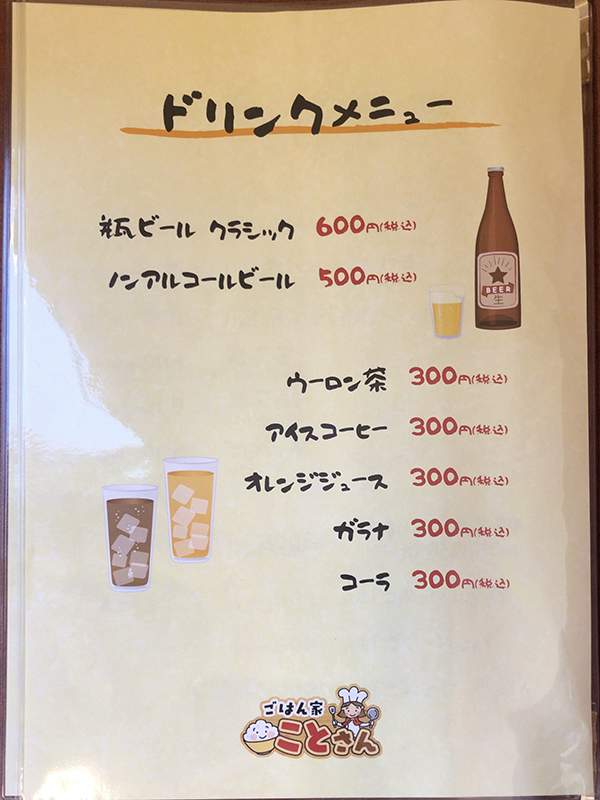 ドリンクメニュー
瓶ビール クラシック 600円(税込)
ノンアルコールビール 500円(税込)
BEER
生
ウーロン茶 300円(税込)
アイスコーヒー 300円(税込)
オレンジジュース 300円(税込)
ガラナ 300円(税込)
コーラ 300円(税込)
ごはん家
ことさん